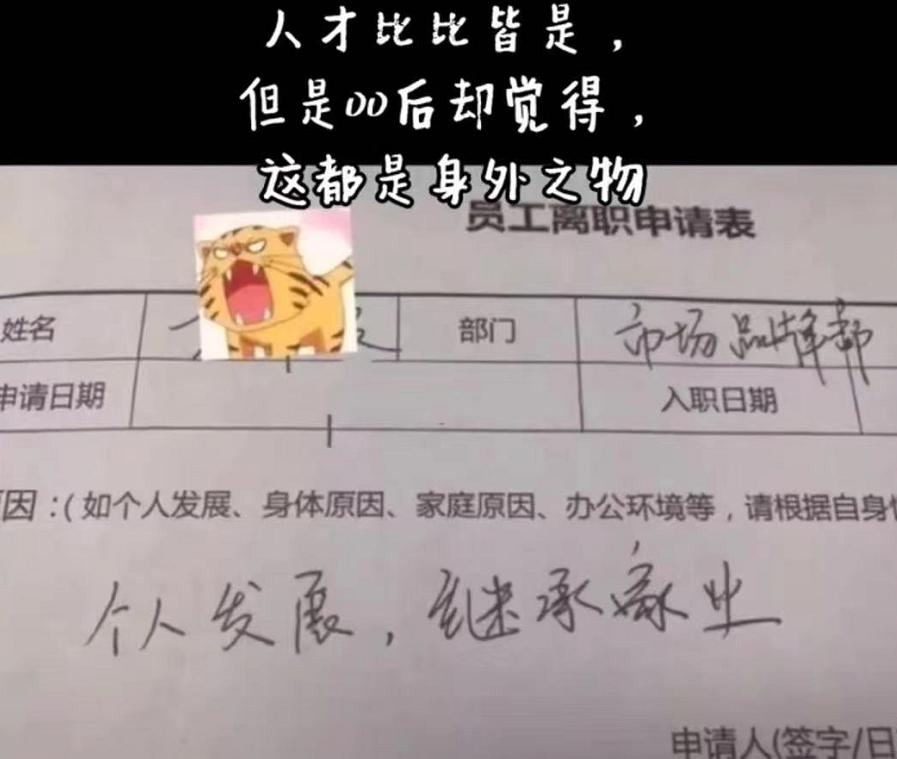 人才比比皆是，
但是00后却觉得，
这都是身外之物
员工离职申请表
姓名 部门 市场品牌部
申请日期 入职日期
因：(如个人发展、身体原因、家庭原因、办公环境等，请根据自身
个人发展，继承家业
申请人(签字/日